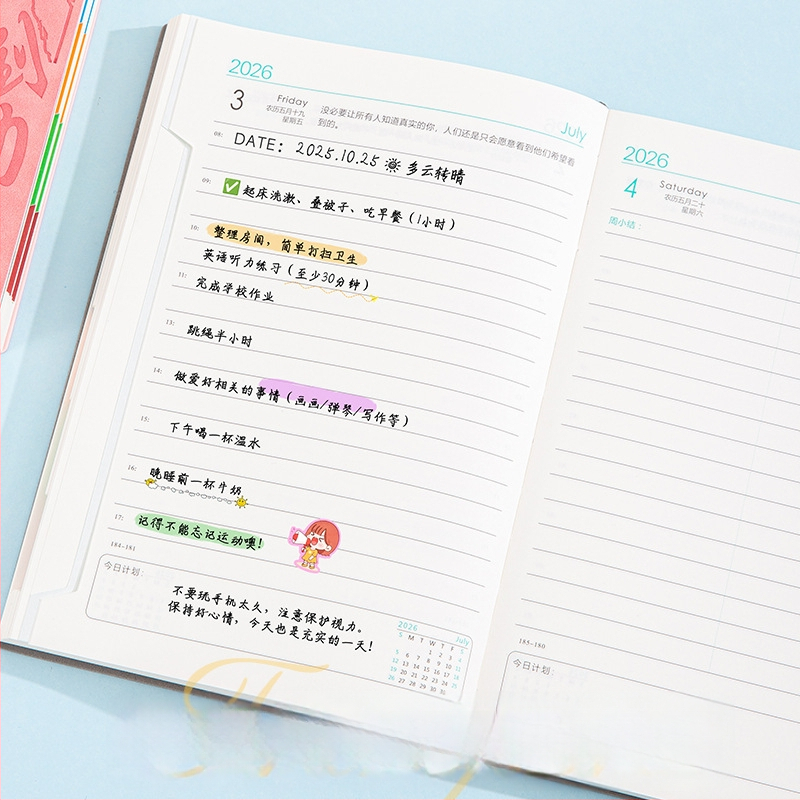 2026
3
Friday
农历五月十九
星期五
没必要让所有人知道真实的你，人们还是只会愿意看到他们希望看
到的。
July
08:
DATE：2025.10.25 多云转晴
09:
起床洗漱、叠被子、吃早餐（1小时）
10:
整理房间，简单打扫卫生
英语听力练习（至少30分钟）
11:
完成学校作业
13:
跳绳半小时
14:
做爱好相关的事情（画画/弹琴/写作等）
15:
下午喝一杯温水
16:
晚睡前一杯牛奶
17:
记得不能忘记运动噢！
184-181
今日计划：
不要玩手机太久，注意保护视力。
保持好心情，今天也是充实的一天！
2026 July
S M T W T F S
1 2 3 4
5 6 7 8 9 10 11
12 13 14 15 16 17 18
19 20 21 22 23 24 25
26 27 28 29 30 31
2026
4
Saturday
农历五月二十
星期六
周小结：
185-180
今日计划：
到